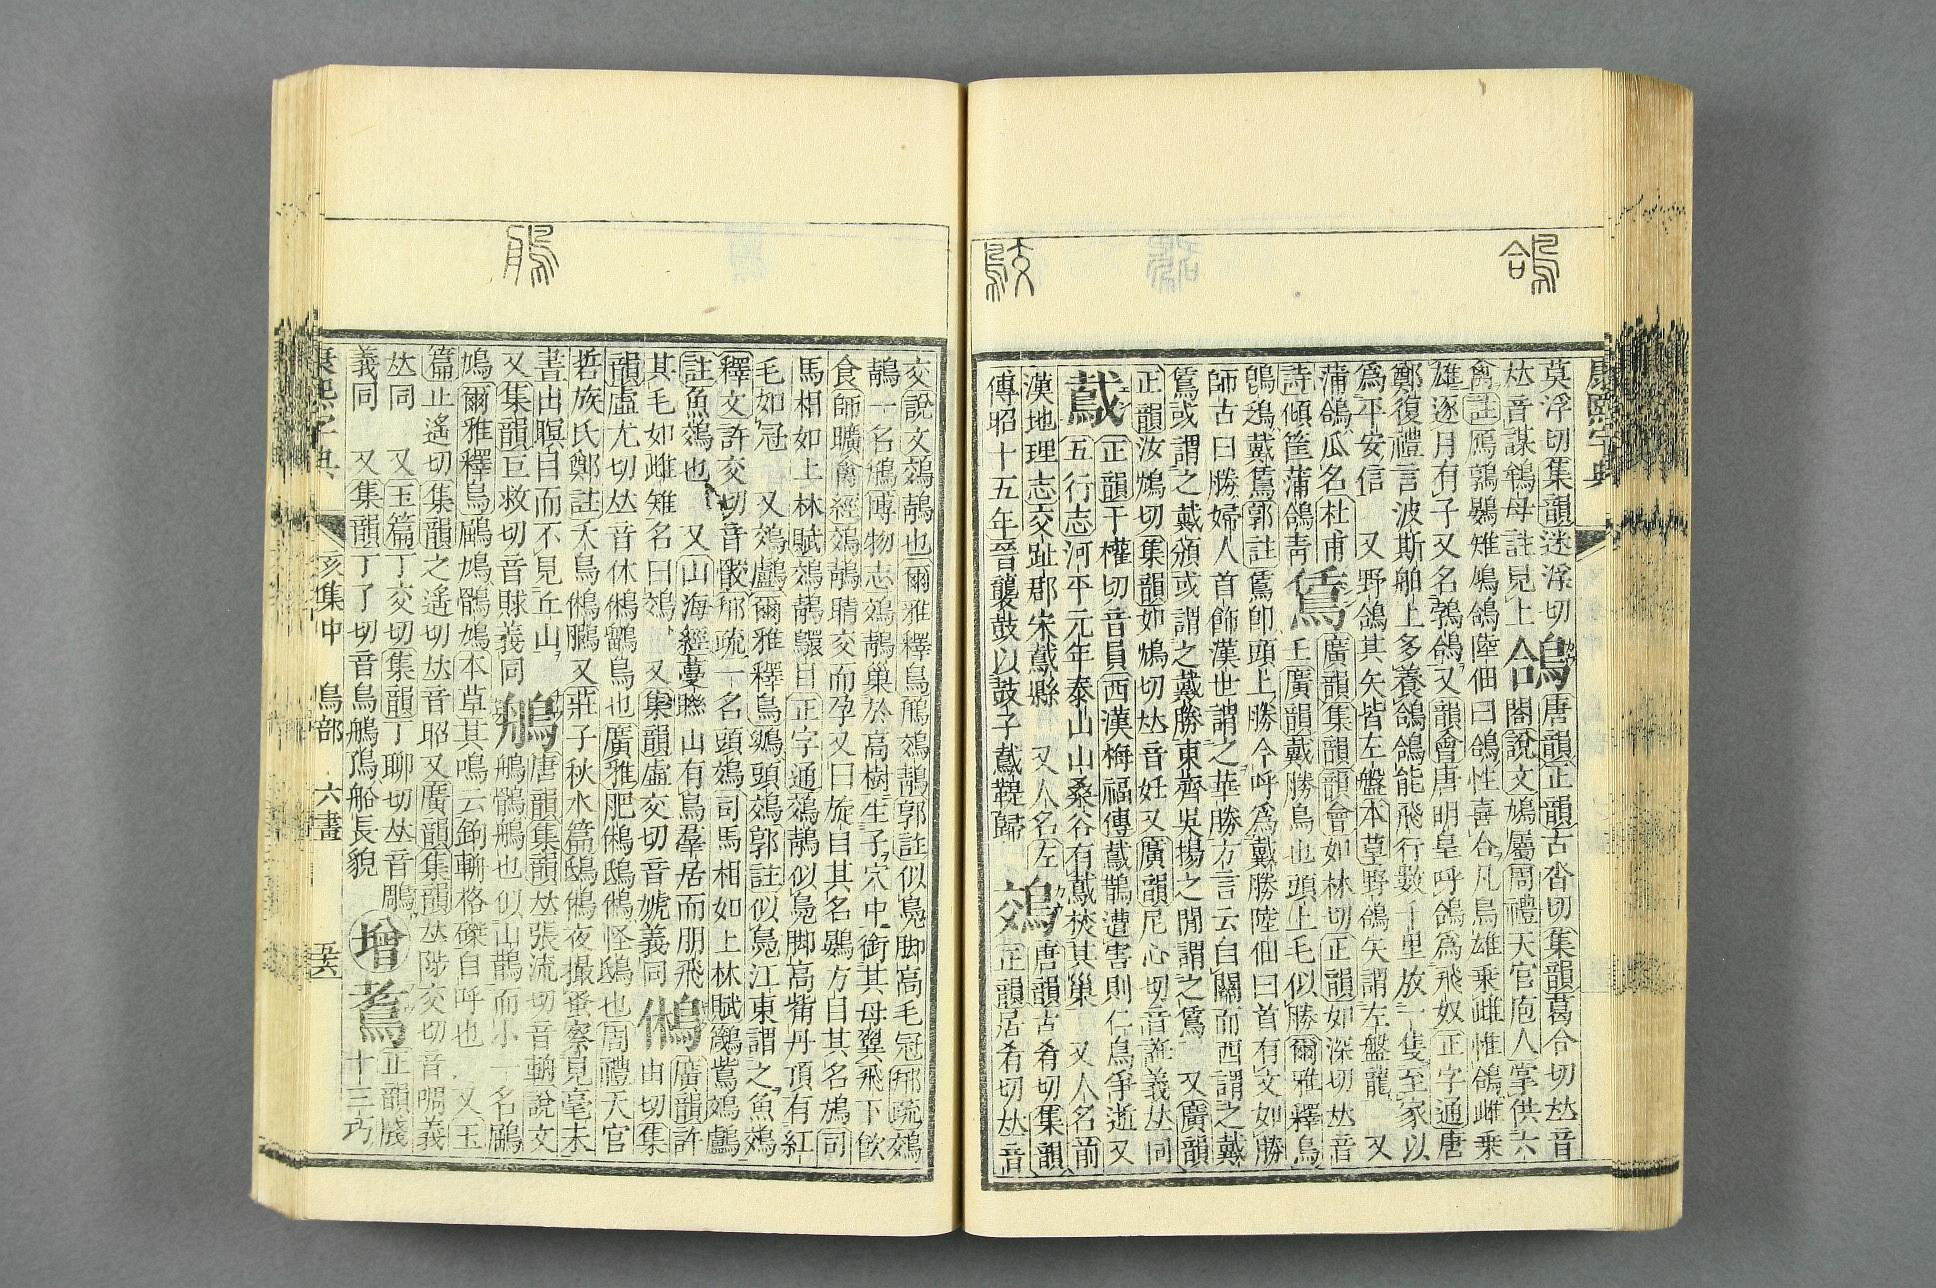 莫浮切集韻迷浮切
𠀤音謀鴾母註見上 鴿 唐韻正韻古沓切集韻葛合切𠀤音
閤說文鳩屬周禮天官庖人掌供六
禽註鴈鶉鷃雉鳩鴿陸佃曰鴿性喜合凡鳥雄乘雌惟鴿雌乘
雄逐月有子又名鵓鴿又韻會唐明皇呼鴿爲飛奴正字通唐
鄭復禮言波斯舶上多養鴿鴿能飛行數千里放一隻至家以
爲平安信 又野鴿其矢皆左盤本草野鴿矢謂左盤龍 又
蒲鴿瓜名杜甫
詩傾筐蒲鴿靑 鵀 廣韻集韻韻會如林切正韻如深切𠀤音
壬廣韻戴勝鳥也頭上毛似勝爾雅釋鳥
鵖鴔戴鵀郭註鵀卽頭上勝今呼爲戴勝陸佃曰首有文如勝
師古曰勝婦人首飾漢世謂之華勝方言云自關而西謂之戴
鵀或謂之戴頒或謂之戴勝東齊吳揚之閒謂之鵀 又廣韻
正韻汝鴆切集韻如鴆切𠀤音妊又廣韻尼心切音誑義𠀤同
䳒 正韻于權切音員西漢梅福傳䳒鵲遭害則仁鳥爭逝又
五行志河平元年泰山山桑谷有䳒焚其巢 又人名前
漢地理志交趾郡朱䳒縣 又人名左
傳昭十五年晉襲鼓以鼓子䳒鞮歸 鵁 唐韻古肴切集韻
正韻居肴切𠀤音
交說文鵁鶄也爾雅釋鳥鳽鵁鶄郭註似鳧脚高毛冠邢疏鵁
鶄一名鳽博物志鵁鶄巢於高樹生子穴中銜其母翼飛下飮
食師曠禽經鵁鶄睛交而孕又曰旋目其名鷃方目其名鴋司
馬相如上林賦鵁鶄鸀目正字通鵁鶄似鳧脚高觜丹頂有紅
毛如冠 又鵁鸕爾雅釋鳥鷜頭鵁郭註似鳧江東謂之魚鵁
釋文許交切音骹邢疏一名頭鵁司馬相如上林賦鷛鴜鵁鸕
註魚鵁也 又山海經蔓聯山有鳥羣居而朋飛
其毛如雌雉名曰鵁 又集韻虛交切音虓義同 鵂 廣韻許
由切集
韻虛尤切𠀤音休鵂鶹鳥也廣雅肥鵂鴟鵂怪鴟也周禮天官
硩族氏鄭註夭鳥鵂鵩又莊子秋水篇鴟鵂夜撮蚤察見毫末
晝出瞑目而不見丘山
又集韻巨救切音賕義同 鵃 唐韻集韻𠀤張流切音輈說文
鵃鶻鵃也似山鵲而小一名鷵
鳩爾雅釋鳥鷵鳩鶻鳩本草其鳴云鉤輈格磔自呼也 又玉
篇止遙切集韻之遙切𠀤音昭又廣韻集韻𠀤陟交切音嘲義
𠀤同 又玉篇丁交切集韻丁聊切𠀤音鵰
義同 又集韻丁了切音鳥鵃䲽船長貌 增 鴦 正韻牋
十三巧
康熙字典 亥集中 鳥部 六畫 五六